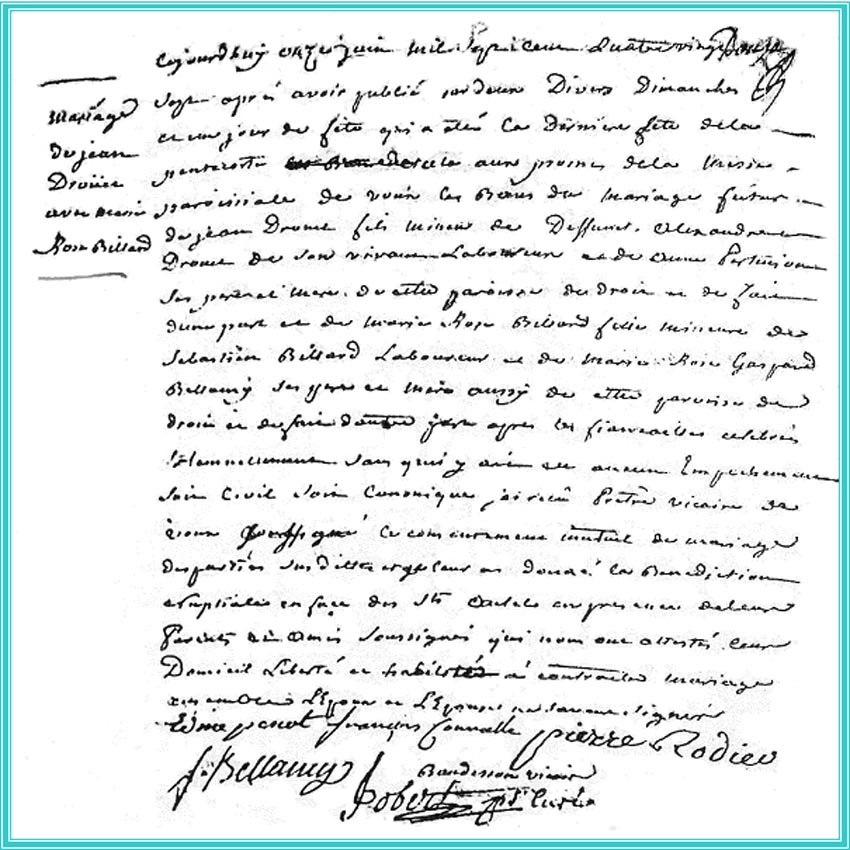 Cejourdhuy onze juin mil Sept cent Quatre vingt Douze
Mariage
de jean
Droüée
avec marie
Rose Billard
Sept après avoir publié par deux Divers Dimanches
et un jour de fête qui a été la Dernière fete de la
pentecoste aux promes de la Messe
paroissiale de les Bans du Mariage futur
de jean Droüet fils mineur de Deffunt Alexandre
Drouet de Son vivant Laboureur et de Anne
Ses père et Mere de cette paroisse de Droit et de fait
dune part et de Marie Rose Billard fille mineure de
Sebastien Billard Laboureur et de Marie Rose Gaspard
Bellamy Ses père et mère aussy de cette paroisse de
droit et de fait dautre part apres les fiancailles celebrées
Solennellement Sans quil y ait eu aucun Empechement
Soit Civil Soit Canonique jai reçu Prêtre vicaire de
Soussigné Le consentement mutuel de mariage
des parties Susdittes et leur ai donné La Benediction
Nuptiale en face des Sts Autels en presence de leurs
Parents et Amis Soussignés qui nous ont attesté leur
Domicil Liberté et habilité à contracter mariage
ensemble L'Epoux et L'Epouse ne Savent Signer
Edme penot François pierre Rodier
Bellamy Baudesson vicaire
Robert